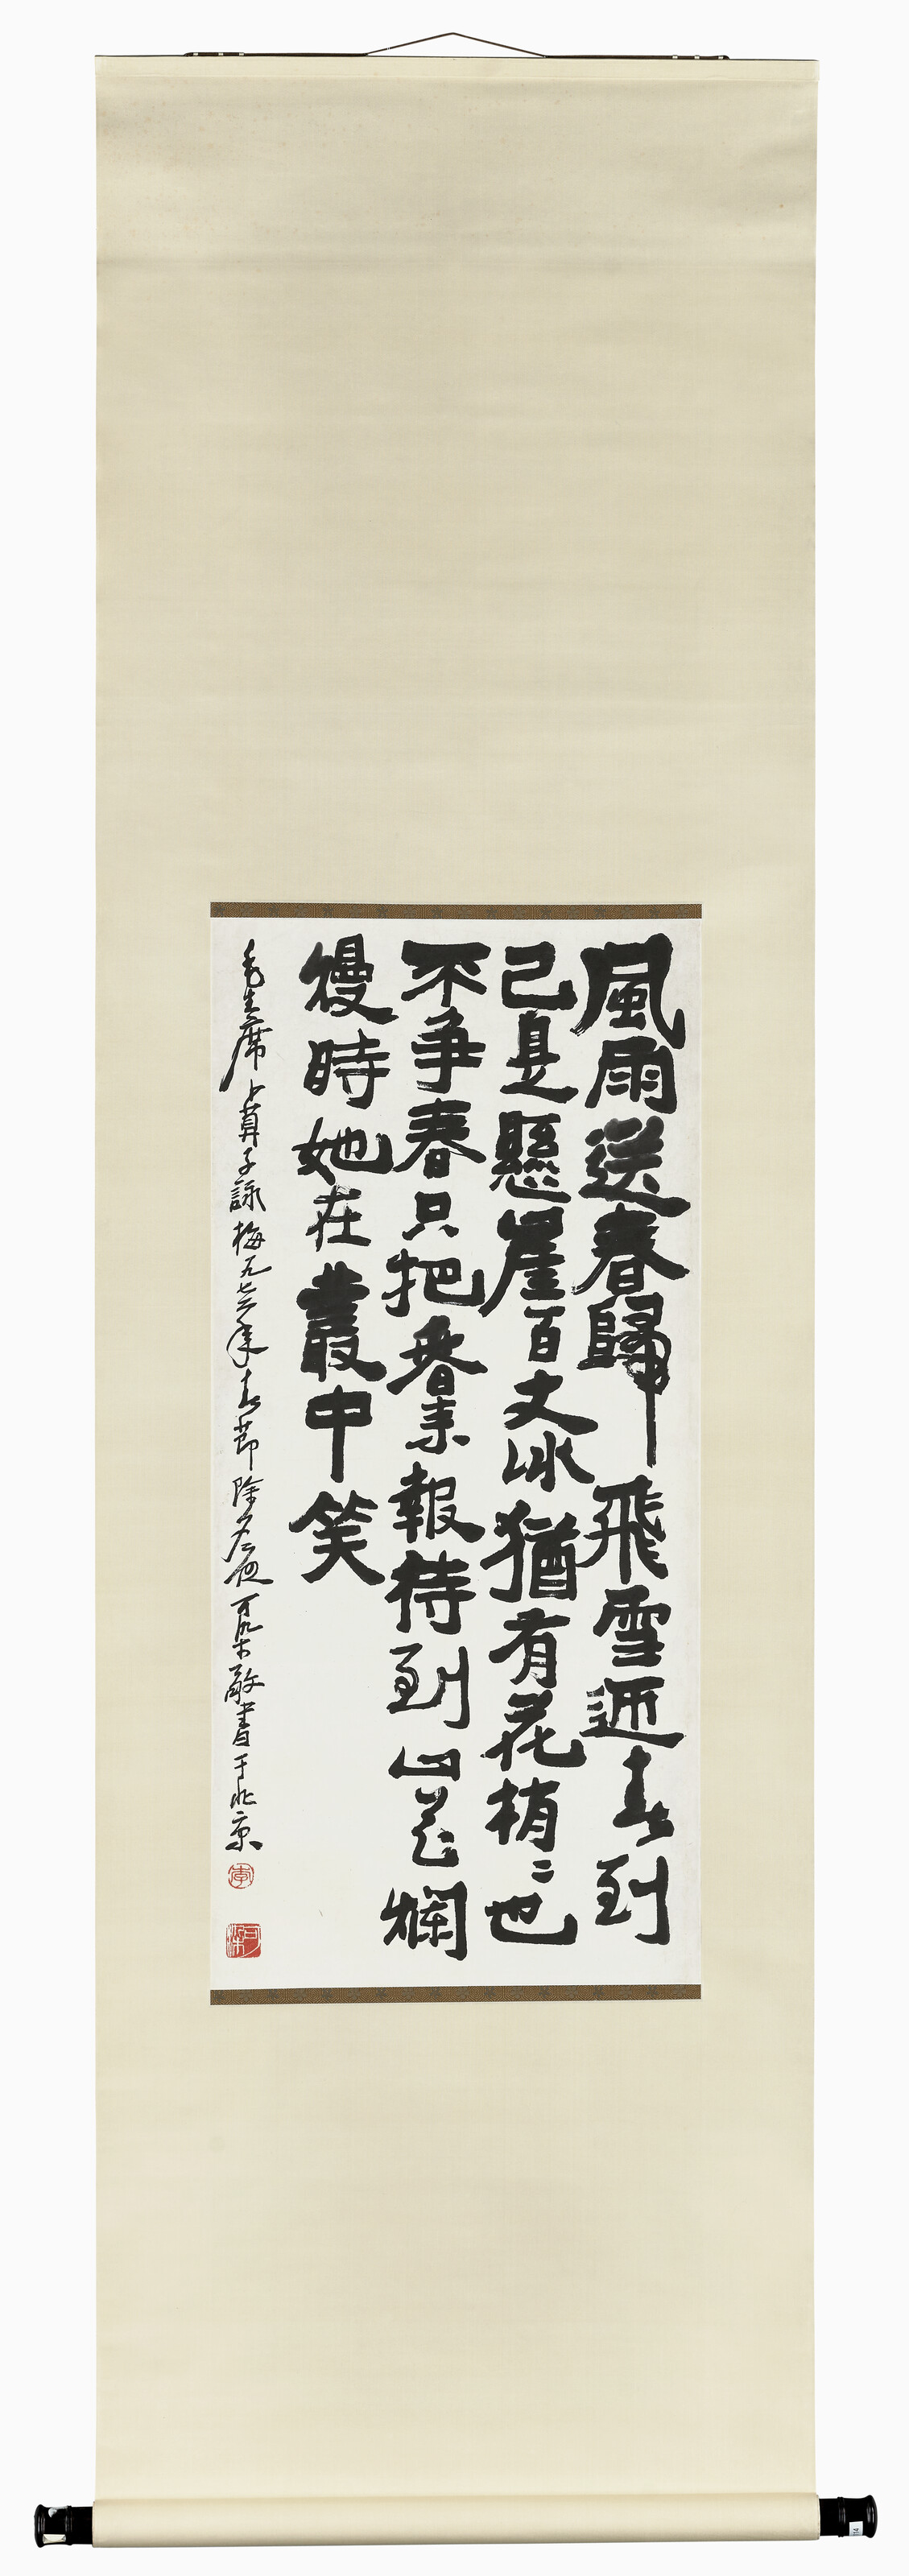 風雨送春歸飛雪迎春到
已是懸崖百丈冰猶有花梢〻也
不爭春只把春來報待到山花爛
熳時她在叢中笑
毛主席卜算子詠梅一九七六年春節除夕之夜可染敬書于北京
李
可染